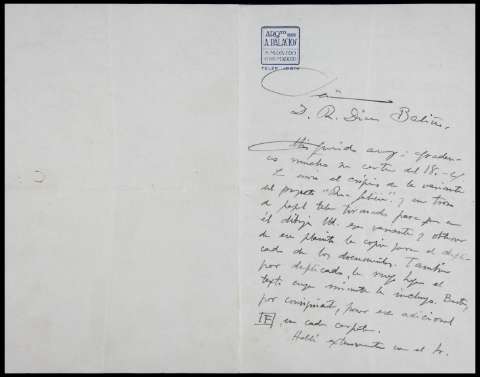 ARQTO
A. PALACIOS
Señor
D. R. Díaz Baliño.
Mi querido amigo: Agradez-
co mucho su carta del 18.
Le envío el croquis de la variante
del proyecto
de papel tela para que en
él dibuje Vd. esa variante y obtener
de ese la copia para el dupli-
cado de los documentos. También
por duplicado, le ruego haga el
texto cuya minuta le incluyo. Basta,
por consiguiente, poner ese adicional
en cada carpeta.
Hablé extensamente con el Sr.